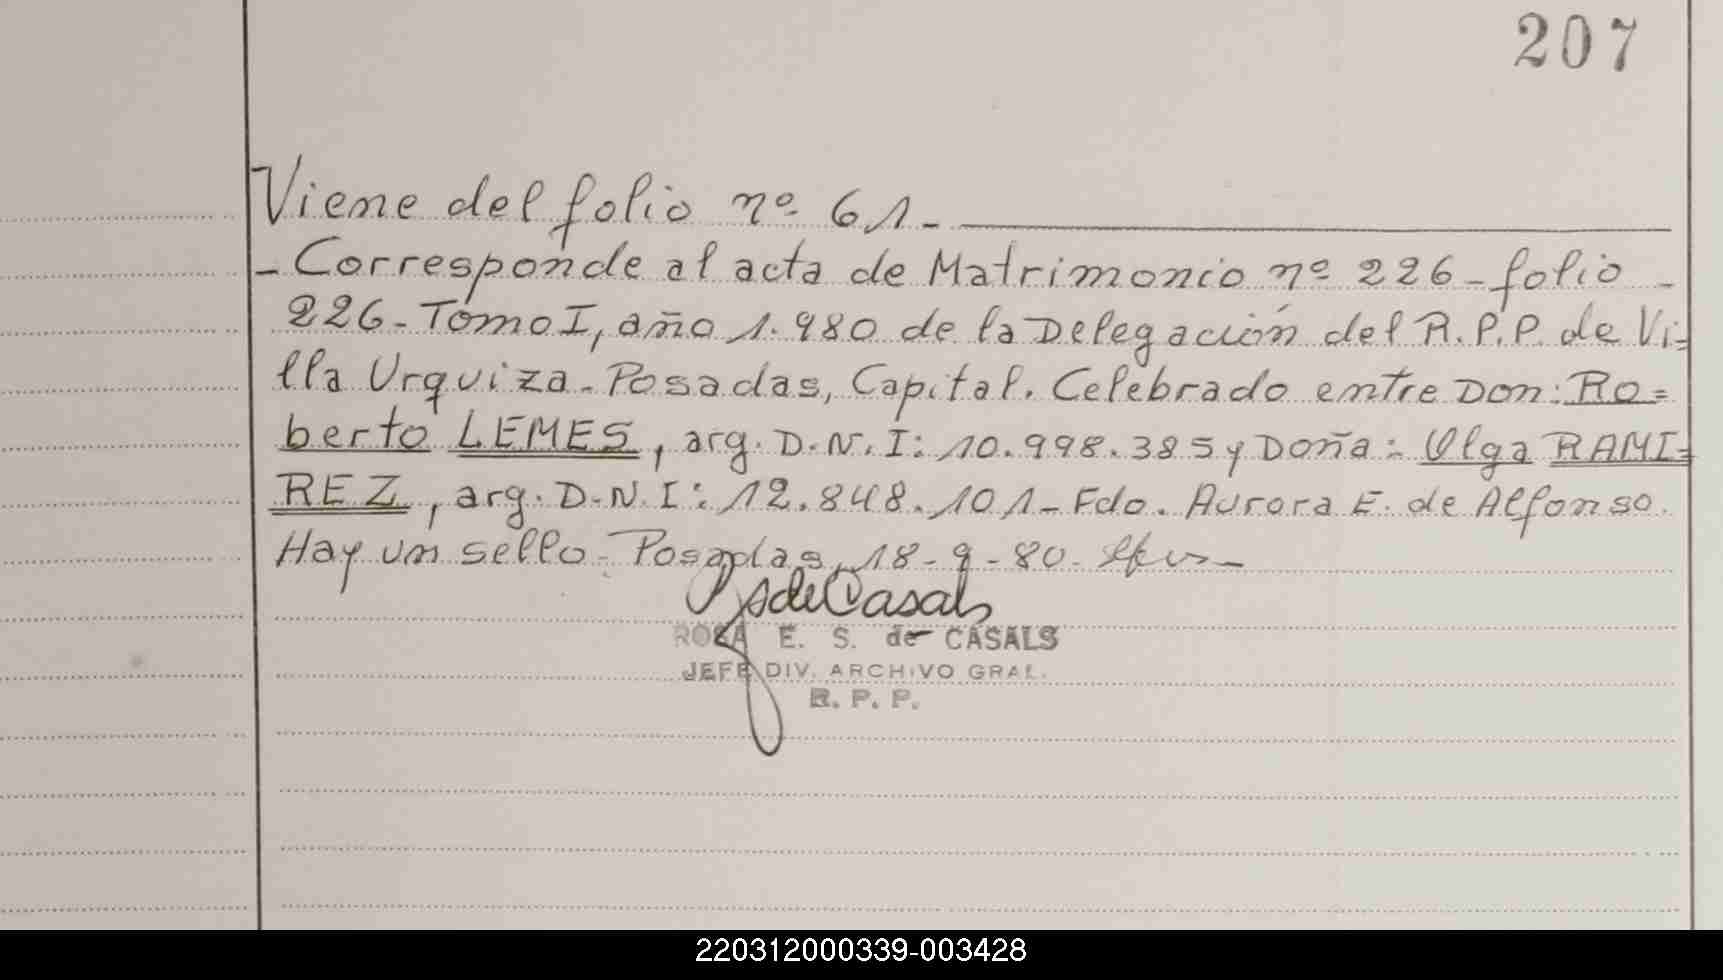 207
Viene del folio nº 61-
- Corresponde al acta de Matrimonio nº 226 - folio -
226 - Tomo I, año 1.980 de la Delegación del R.P.P. de Vi=
lla Urquiza - Posadas, Capital. Celebrado entre Don: Ro=
berto LEMES, arg. D.N.I: 10.998.385 y Doña: Olga RAMI=
REZ, arg. D.N.I: 12.848.101 - Fdo. Aurora E. de Alfonso.
Hay un sello - Posadas, 18-9-80.
de Casals
ROSA E. S. de CASALS
JEFE DIV. ARCHIVO GRAL.
R. P. P.
220312000339-003428